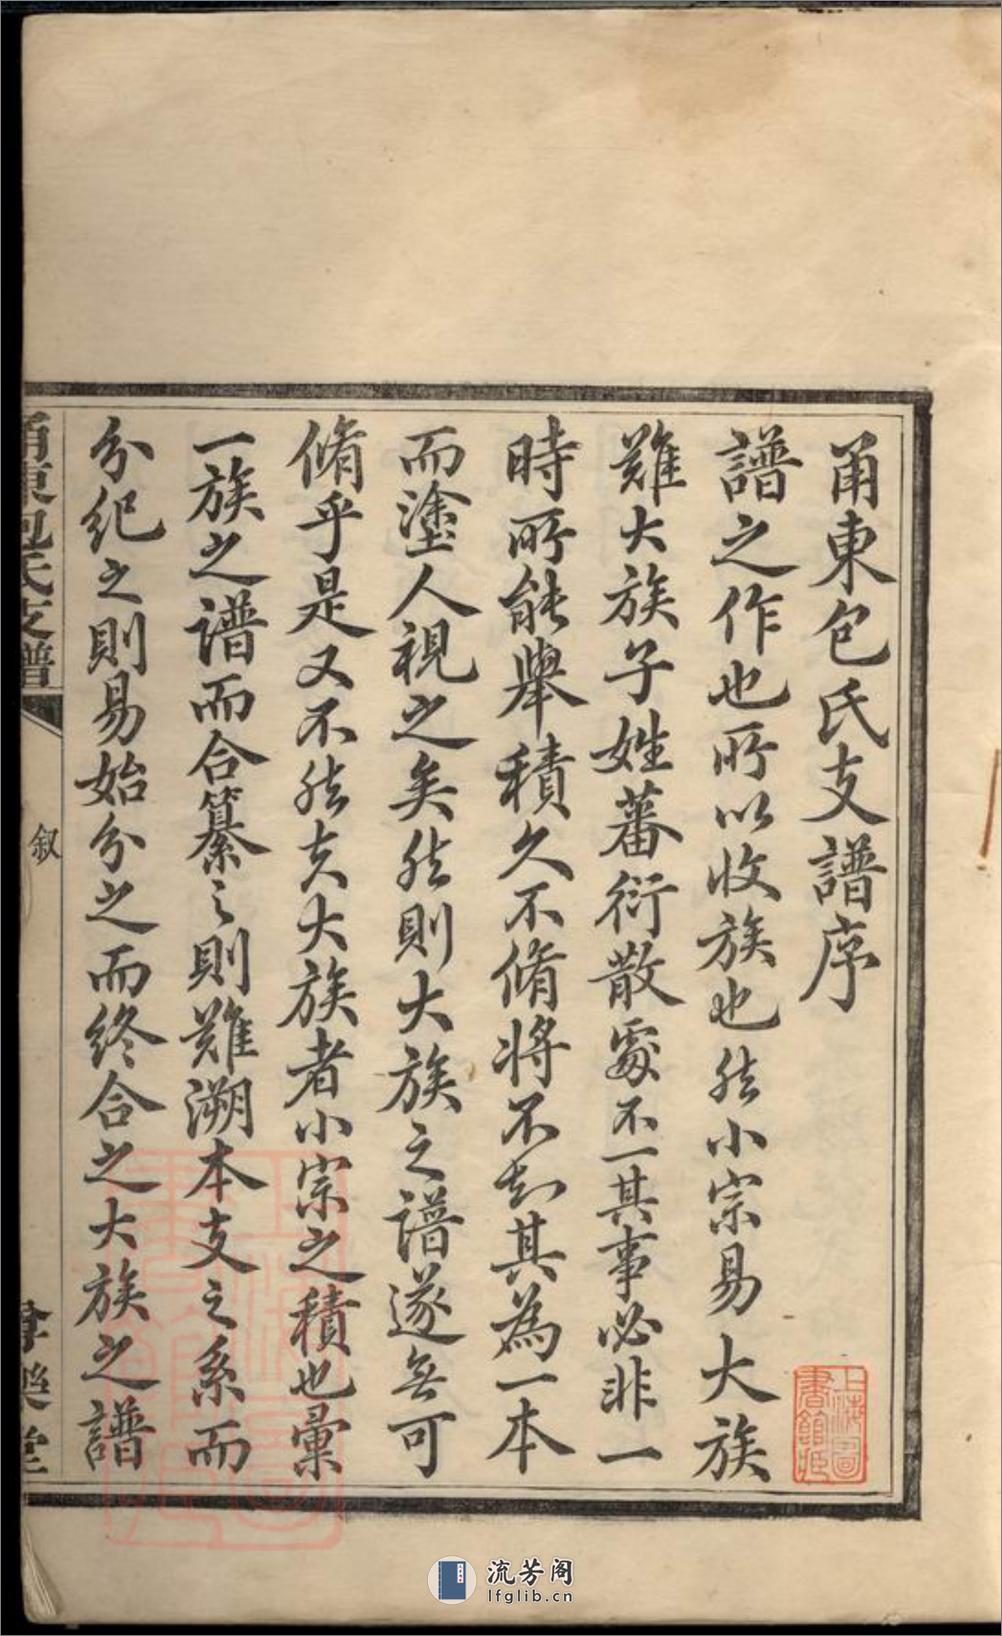 甬東包氏支譜序
譜之作也所以收族也然小宗易大族
難大族子姓蕃衍散處不一其事必非一
時所能舉積久不脩將不知其為一本
而塗人視之矣然則大族之譜遂無可
脩乎是又不然夫大族者小宗之積也彙
一族之譜而合纂之則難溯本支之系而
分紀之則易始分之而終合之大族之譜
甬東包氏支譜
叙
上海圖書館藏
流芳阁
lfglib.cn